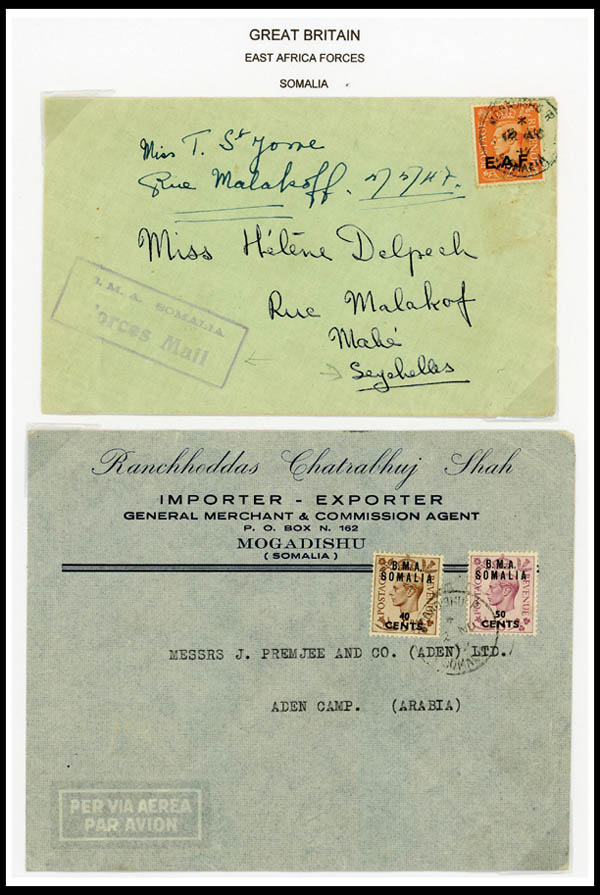 GREAT BRITAIN
EAST AFRICA FORCES
SOMALIA
Miss T. St Jorre
Rue Malakoff. 5/5/47.
E.A.F.
Miss Hélène Delpech
Rue Malakof
Mahé
Seychelles
M. A. SOMALIA
Forces Mail
Ranchhoddas Chatrabhuj Shah
IMPORTER - EXPORTER
GENERAL MERCHANT & COMMISSION AGENT
P. O. BOX N. 162
MOGADISHU
(SOMALIA)
B.M.A. SOMALIA
POSTAGE
40 CENTS
B.M.A. SOMALIA
POSTAGE REVENUE
50 CENTS
MESSRS J. PREMJEE AND CO. (ADEN) LTD.
ADEN CAMP. (ARABIA)
PER VIA AEREA
PAR AVION